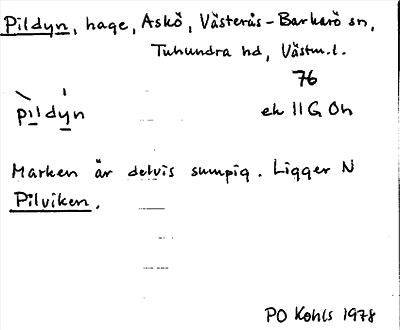 Pildyn, hage, Askö, Västerås-Barkarö sn,
Tuhundra hd, Västm.l.
76
pildyn
ek 11G 0h
Marken är delvis sumpig. Ligger N
Pilviken.
PO Kohls 1978